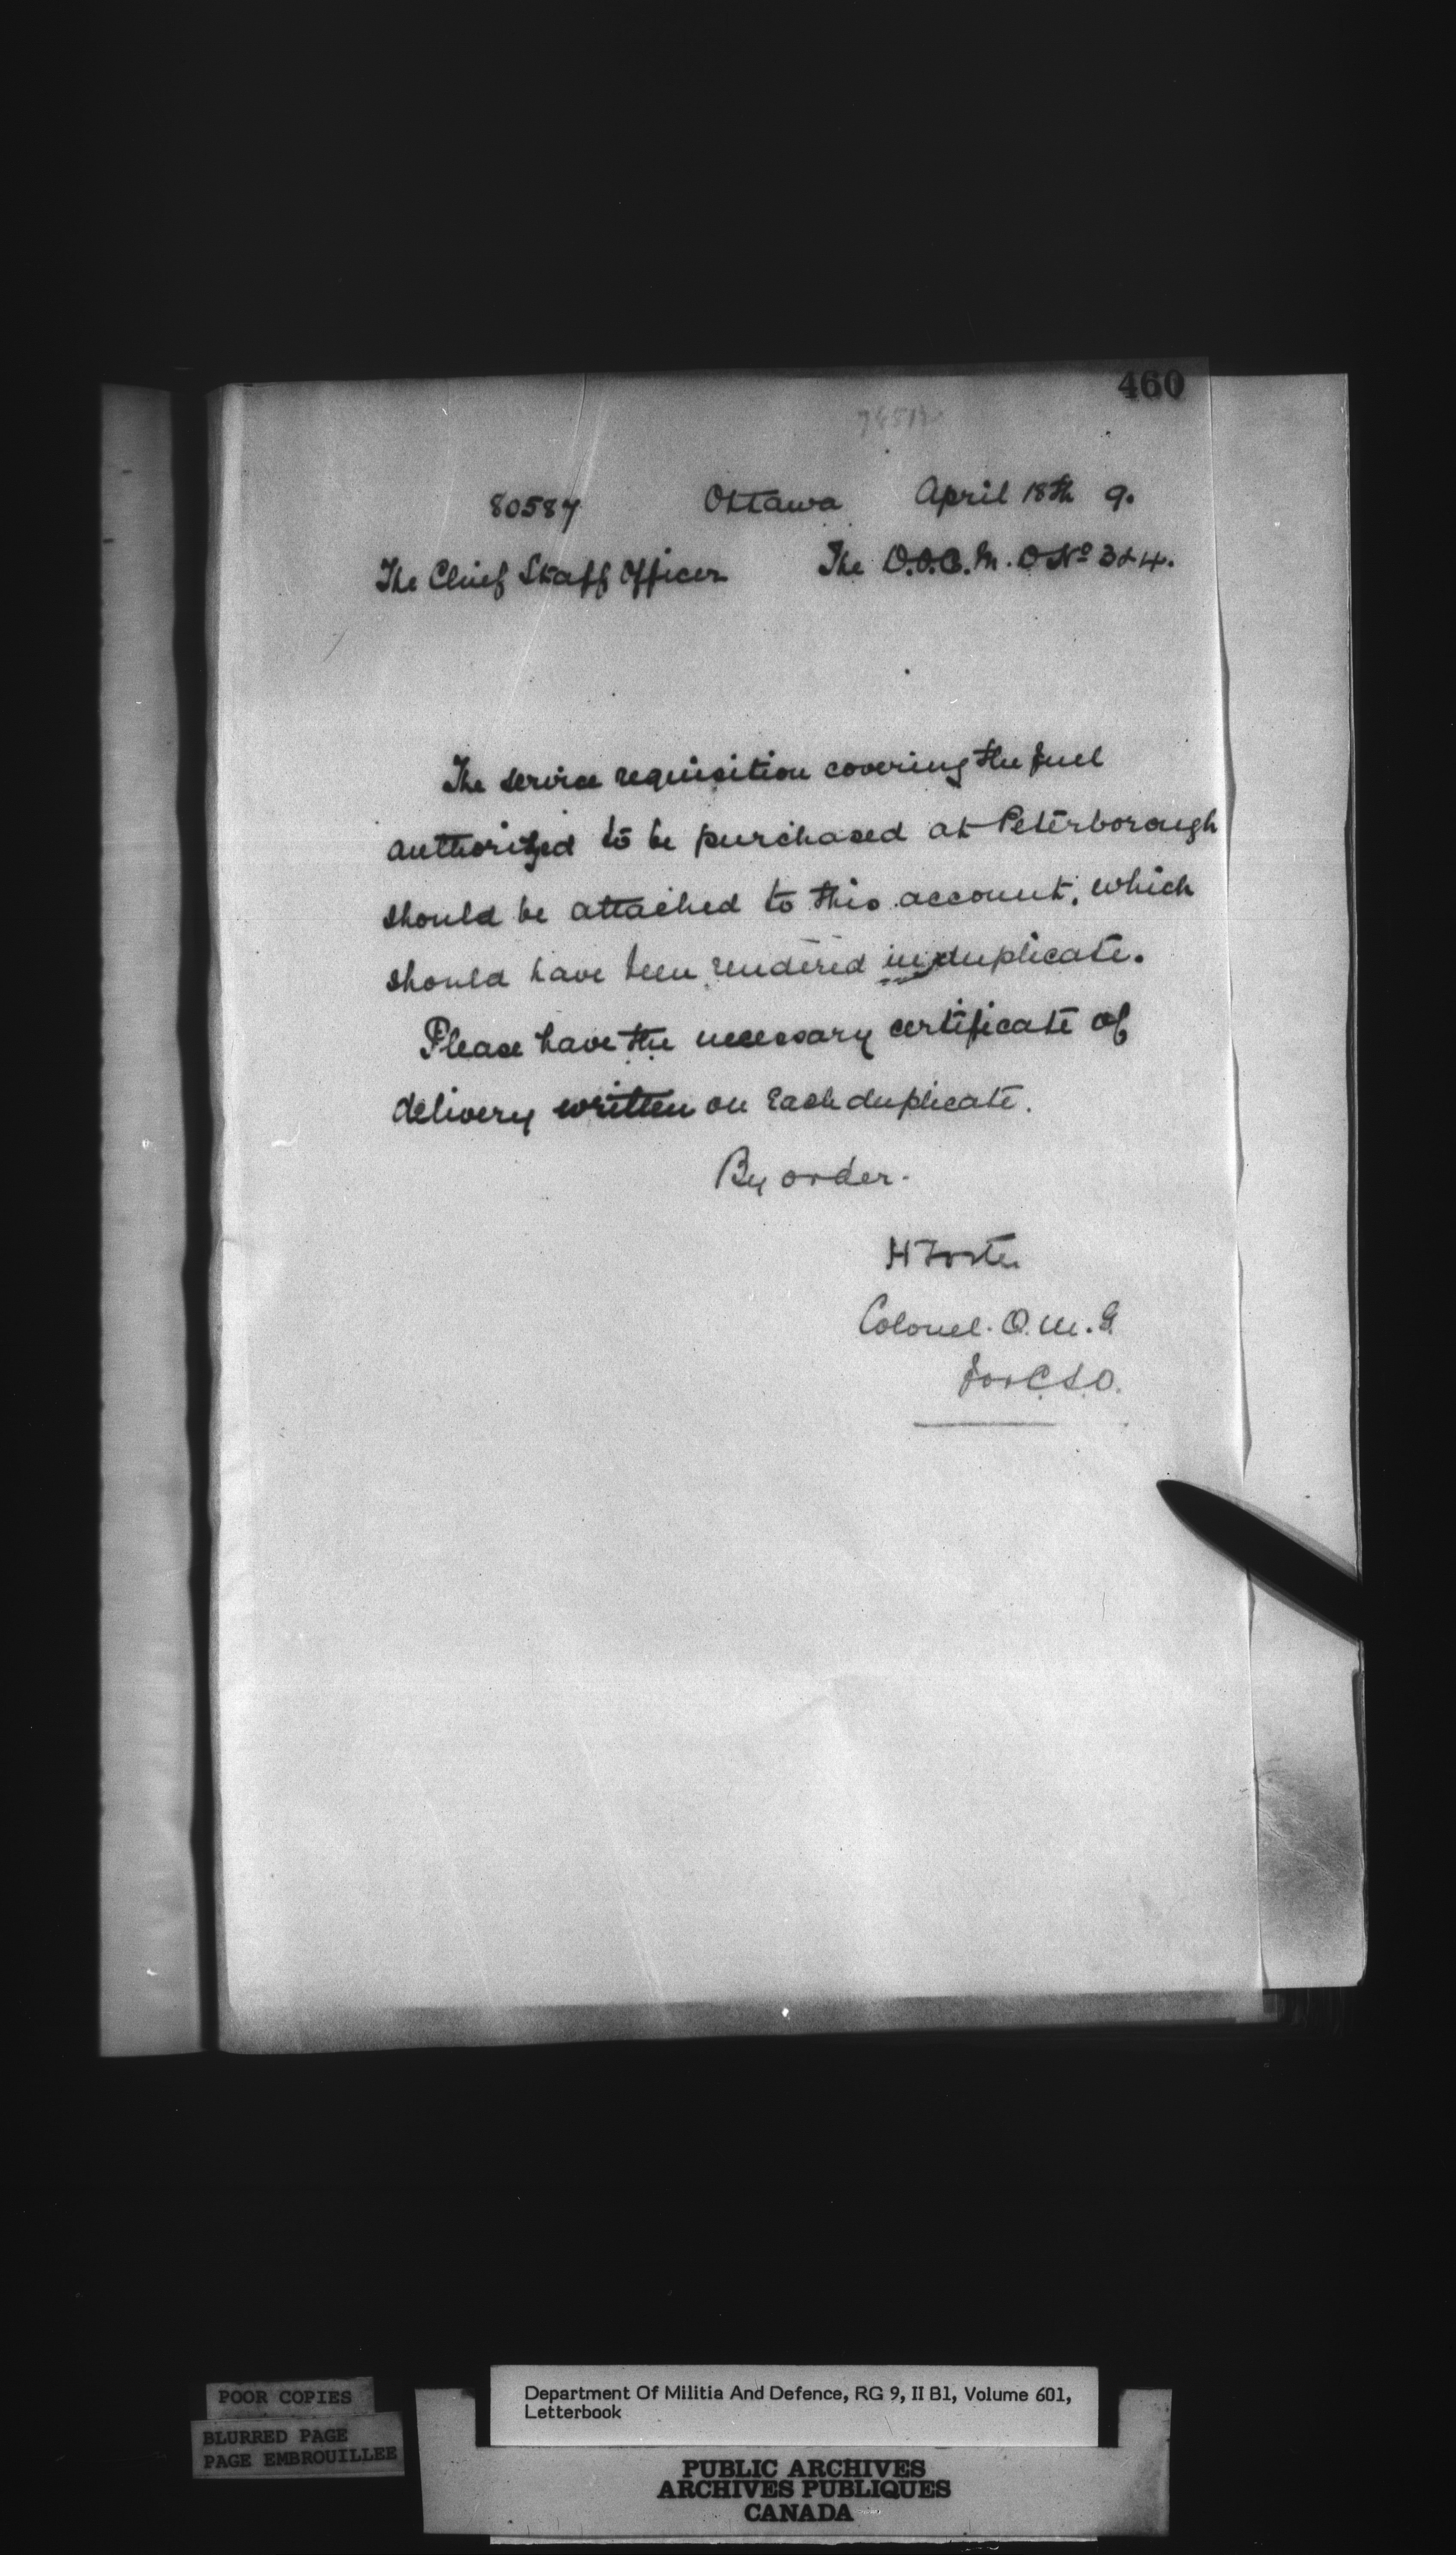 460
80587 Ottawa April 18th 9.
The Chief Staff Officer The D.O.C. M. D Nº 3&4.
The service requisition covering the fuel
authorized to be purchased at Peterborough
should be attached to this account, which
should have been rendered in duplicate.
Please have the necessary certificate of
delivery written on each duplicate.
By order.
H Foster
Colonel. Q.M.G.
for C.S.O.
POOR COPIES
BLURRED PAGE
PAGE EMBROUILLEE
Department Of Militia And Defence, RG 9, II B1, Volume 601,
Letterbook
PUBLIC ARCHIVES
ARCHIVES PUBLIQUES
CANADA